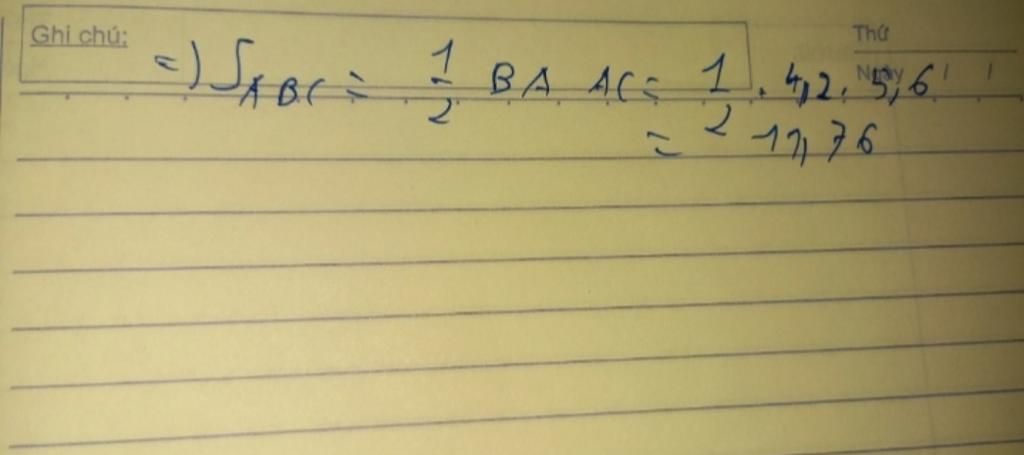 Ghi chú:
Thứ
Ngày / /
=) S_ABC = 1/2 BA AC = 1/2 . 4,2 . 5,6
= 11,76